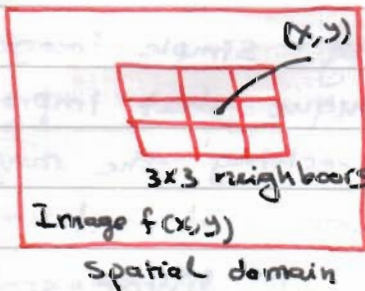 (x,y)
3x3 neighbours
Image f(x,y)
Spatial domain